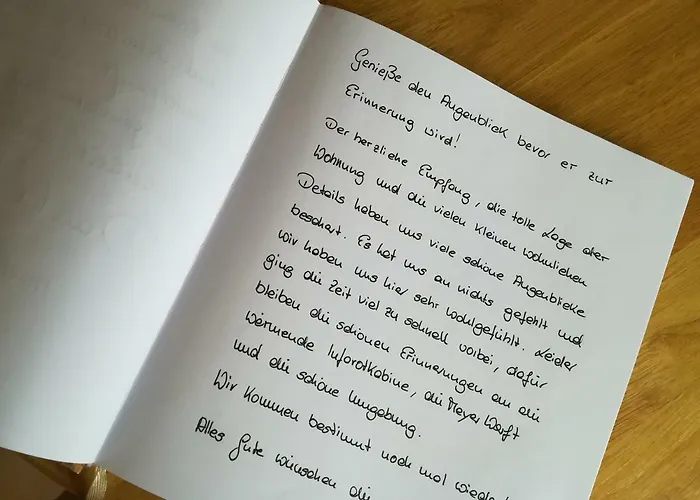 Genieße den Augenblick bevor er zur
Erinnerung wird!
Der herzliche Empfang, die tolle Lage der
Wohnung und die vielen kleinen wohnlichen
Details haben uns viele schöne Augenblicke
beschert. Es hat uns an nichts gefehlt und
wir haben uns hier sehr wohlgefühlt. Leider
ging die Zeit viel zu schnell vorbei, dafür
bleiben die schönen Erinnerungen an die
wärmende Infarotkabine, die Meyer Werft
und die schöne Umgebung.
Wir kommen bestimmt noch mal
Alles Gute wünschen die